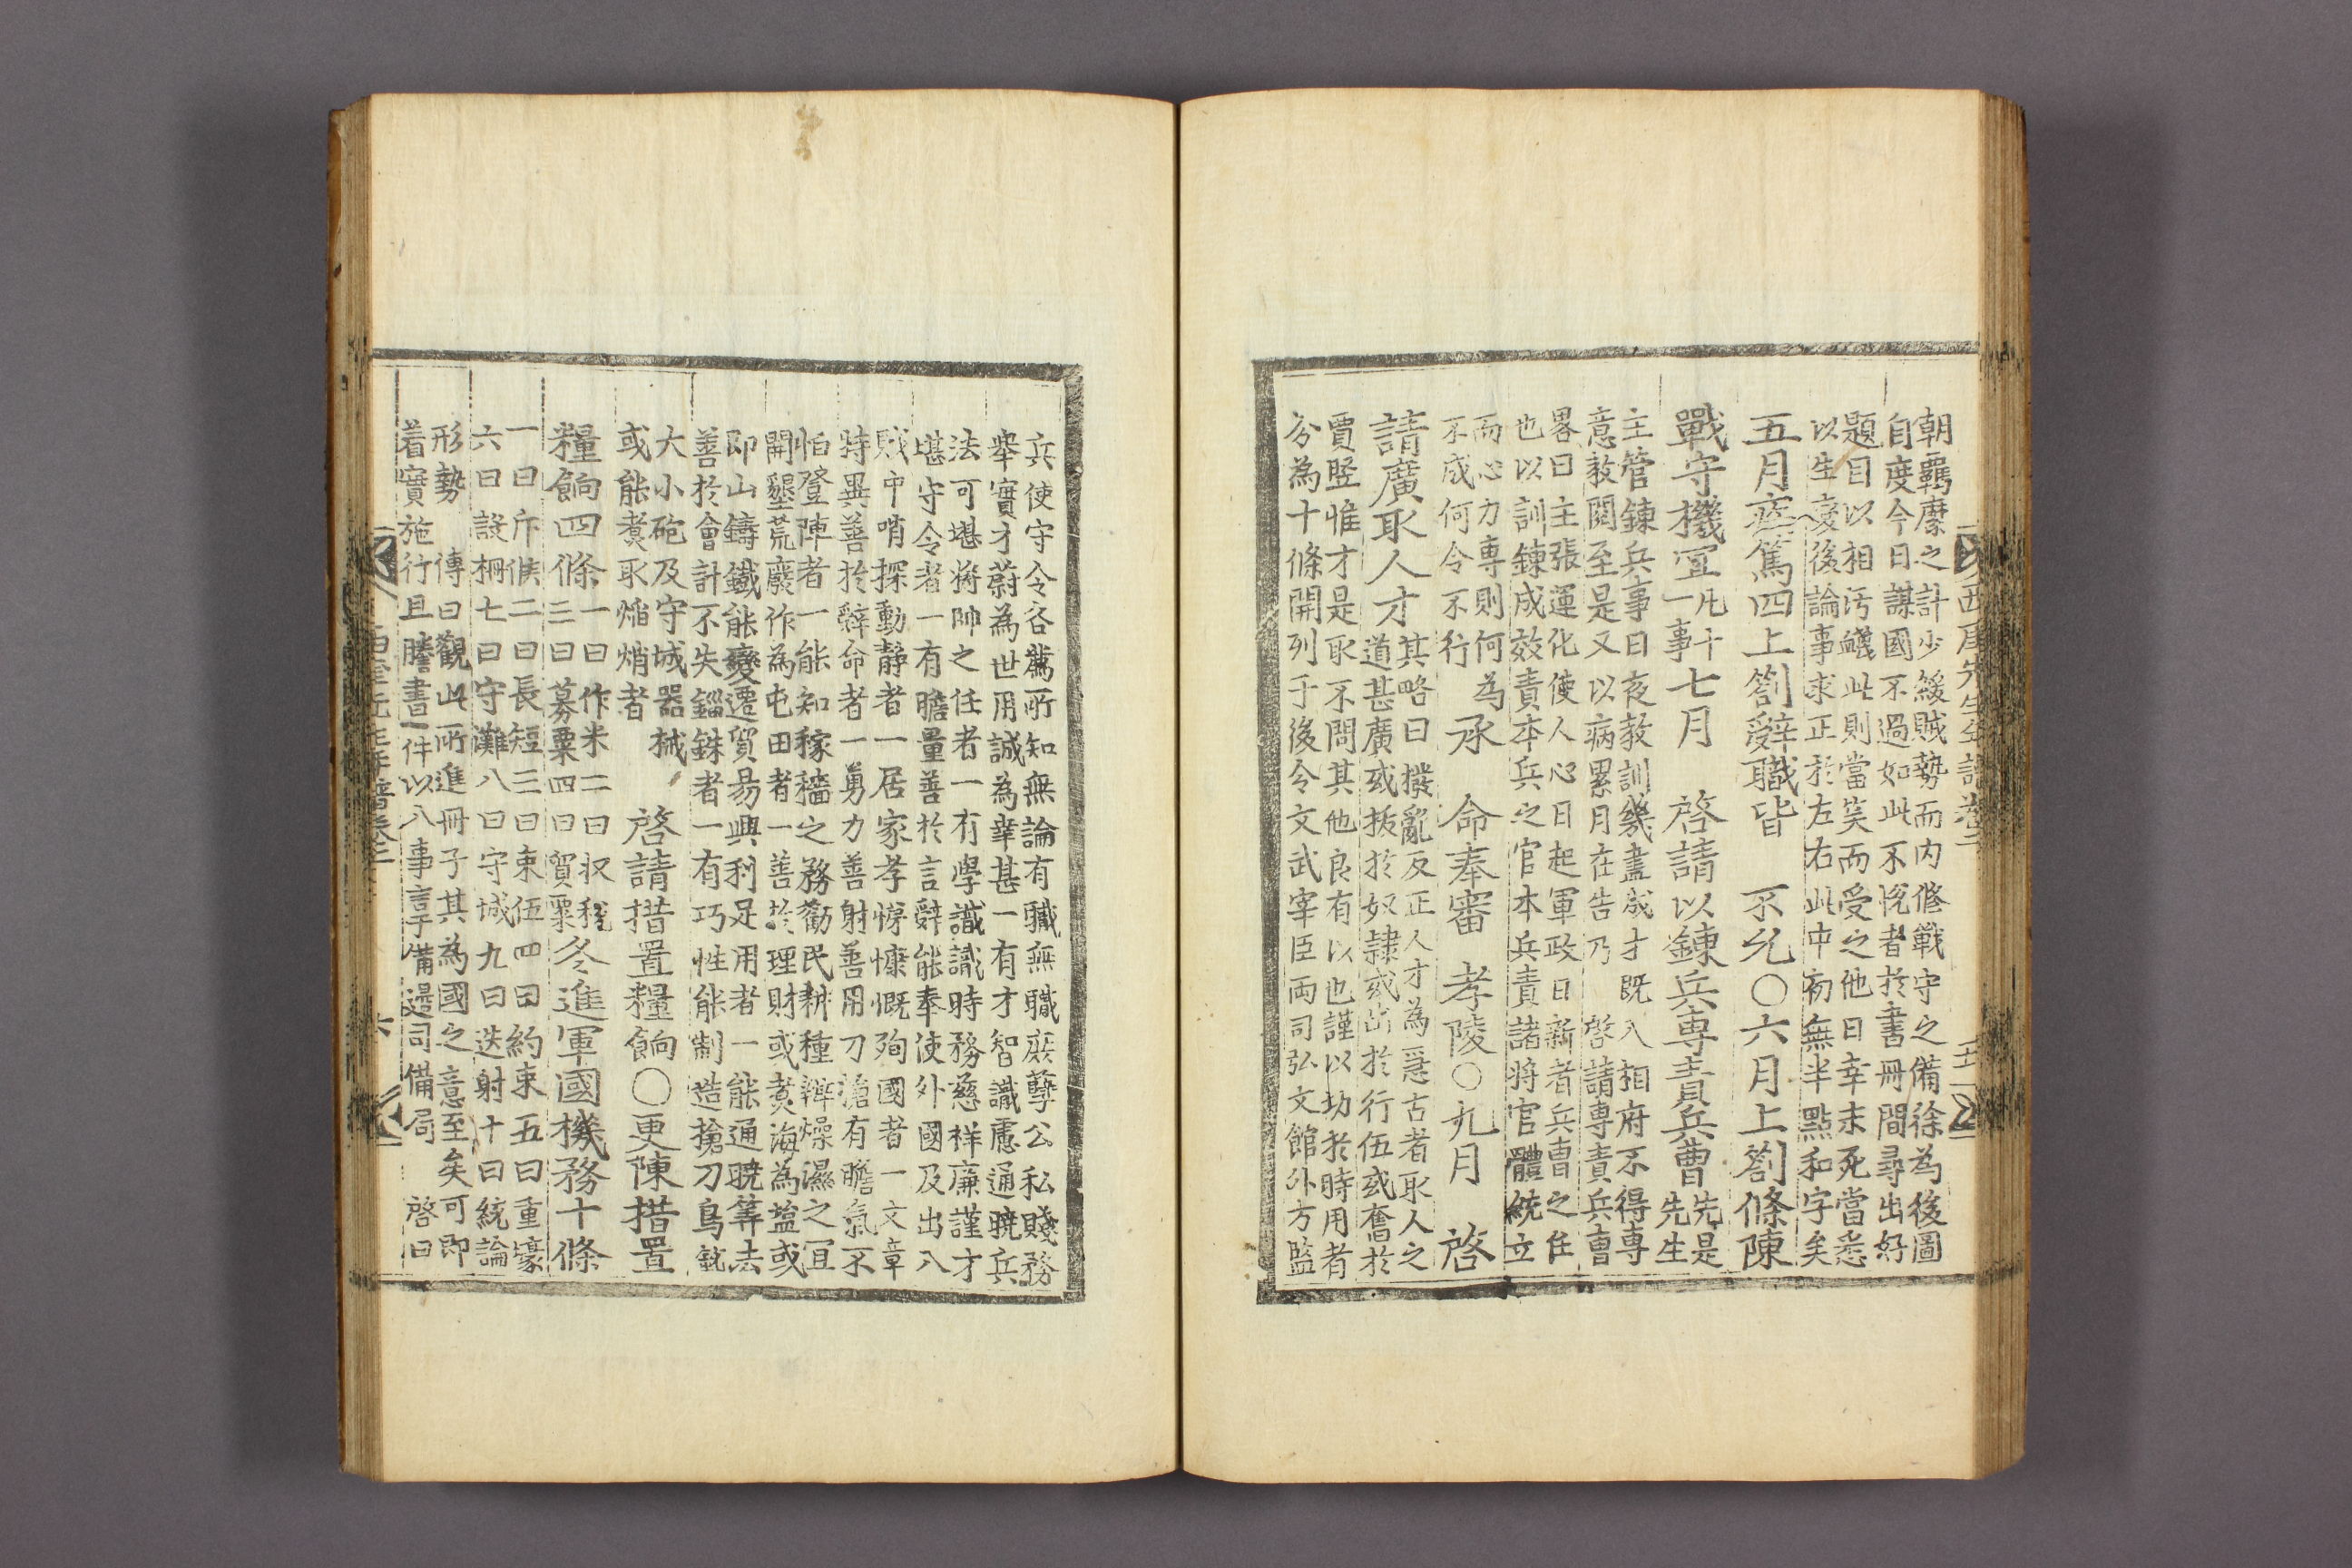 朝羈縻之計少緩賊勢而內修戰守之備徐為後圖
自度今日謀國不過如此不悅者於書冊間尋出好
題目以相汚衊此則當笑而受之他日幸未死當悉
以生變後論事求正於左右此中初無半點和字矣
五月疾篤四上劄辭職皆 不允○六月上劄條陳
戰守機宜凡十一事七月 啓請以鍊兵專責兵曹先是先生
主管鍊兵事日夜敎訓幾盡成才既入相府不得專
意敎閱至是又以病累月在告乃 啓請專責兵曹
畧曰主張運化使人心日起軍政日新者兵曹之任
也以訓鍊成效責本兵之官本兵責諸將官體統立
而心力專則何為
不成何令不行
承 命奉審 孝陵○九月 啓
請廣取人才
其略曰撥亂反正人才為急古者取人之
道甚廣或拔於奴隷或出於行伍或奮於
賈竪惟才是取不問其他良有以也謹以切於時用者
分為十條開列于後令文武宰臣兩司弘文館外方監
兵使守令各薦所知無論有職無職庶孽公私賤務
擧實才蔚為世用誠為幸甚一有才智識慮通曉兵
法可堪將帥之任者一有學識識時務慈祥廉謹才
堪守令者一有膽量善於言辭能奉使外國及出入
賊中哨探動靜者一居家孝悌慷慨殉國者一文章
特異善於辭命者一勇力善射善用刀鎗有膽氣不
怕登陣者一能知稼穡之務勸民耕種辨燥濕之宜
開墾荒廢作為屯田者一善於理財或煑海為塩或
即山鑄鐵能變遷貿易興利足用者一能通曉筭法
善於會計不失錙銖者一有巧性能制造搶刀鳥銃
大小砲及守城器械
或能煑取焰焇者
啓請措置糧餉○更陳措置
糧餉四條一曰作米二曰收稅
三曰募粟四曰貿粟
冬進軍國機務十條
一曰斥候二曰長短三曰束伍四曰約束五曰重壕
六曰設柵七曰守灘八曰守城九曰迭射十曰統論
形勢 傳曰觀此所進冊子其為國之意至矣可即
着實施行且謄書一件以入事言于備邊司備局 啓曰